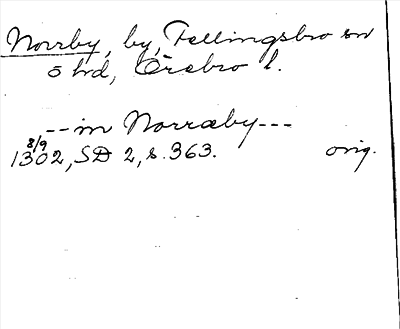 Norrby, by, Fellingsbro sn
ö hd, Örebro l.
-- in Norræby ---
8/9
1302, SD 2, s. 363. orig.